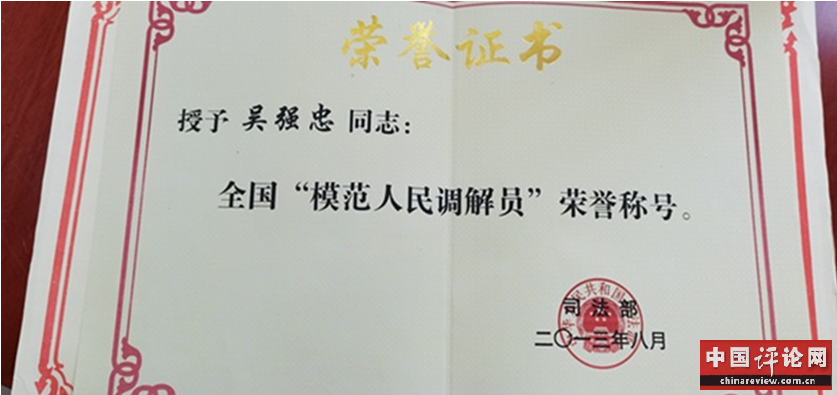 荣誉证书
授予 吴强忠 同志：
全国“模范人民调解员”荣誉称号。
司法部
二〇一三年八月
中国评论网
chinareview.com.cn